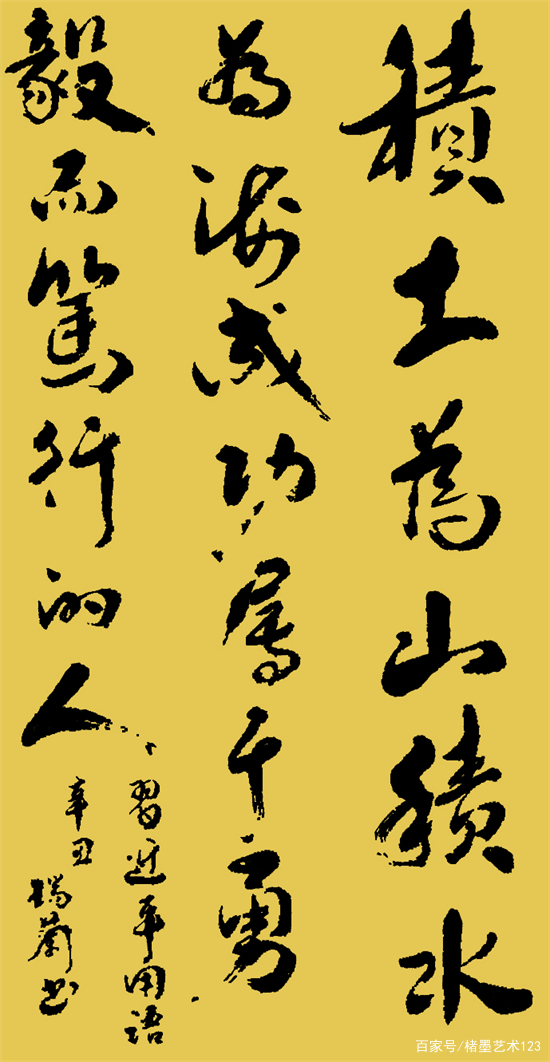 積土為山積水
為海成功屬于勇
毅而篤行的人
習近平用語
辛丑 瑞蘭书
百家号/楮墨艺术123